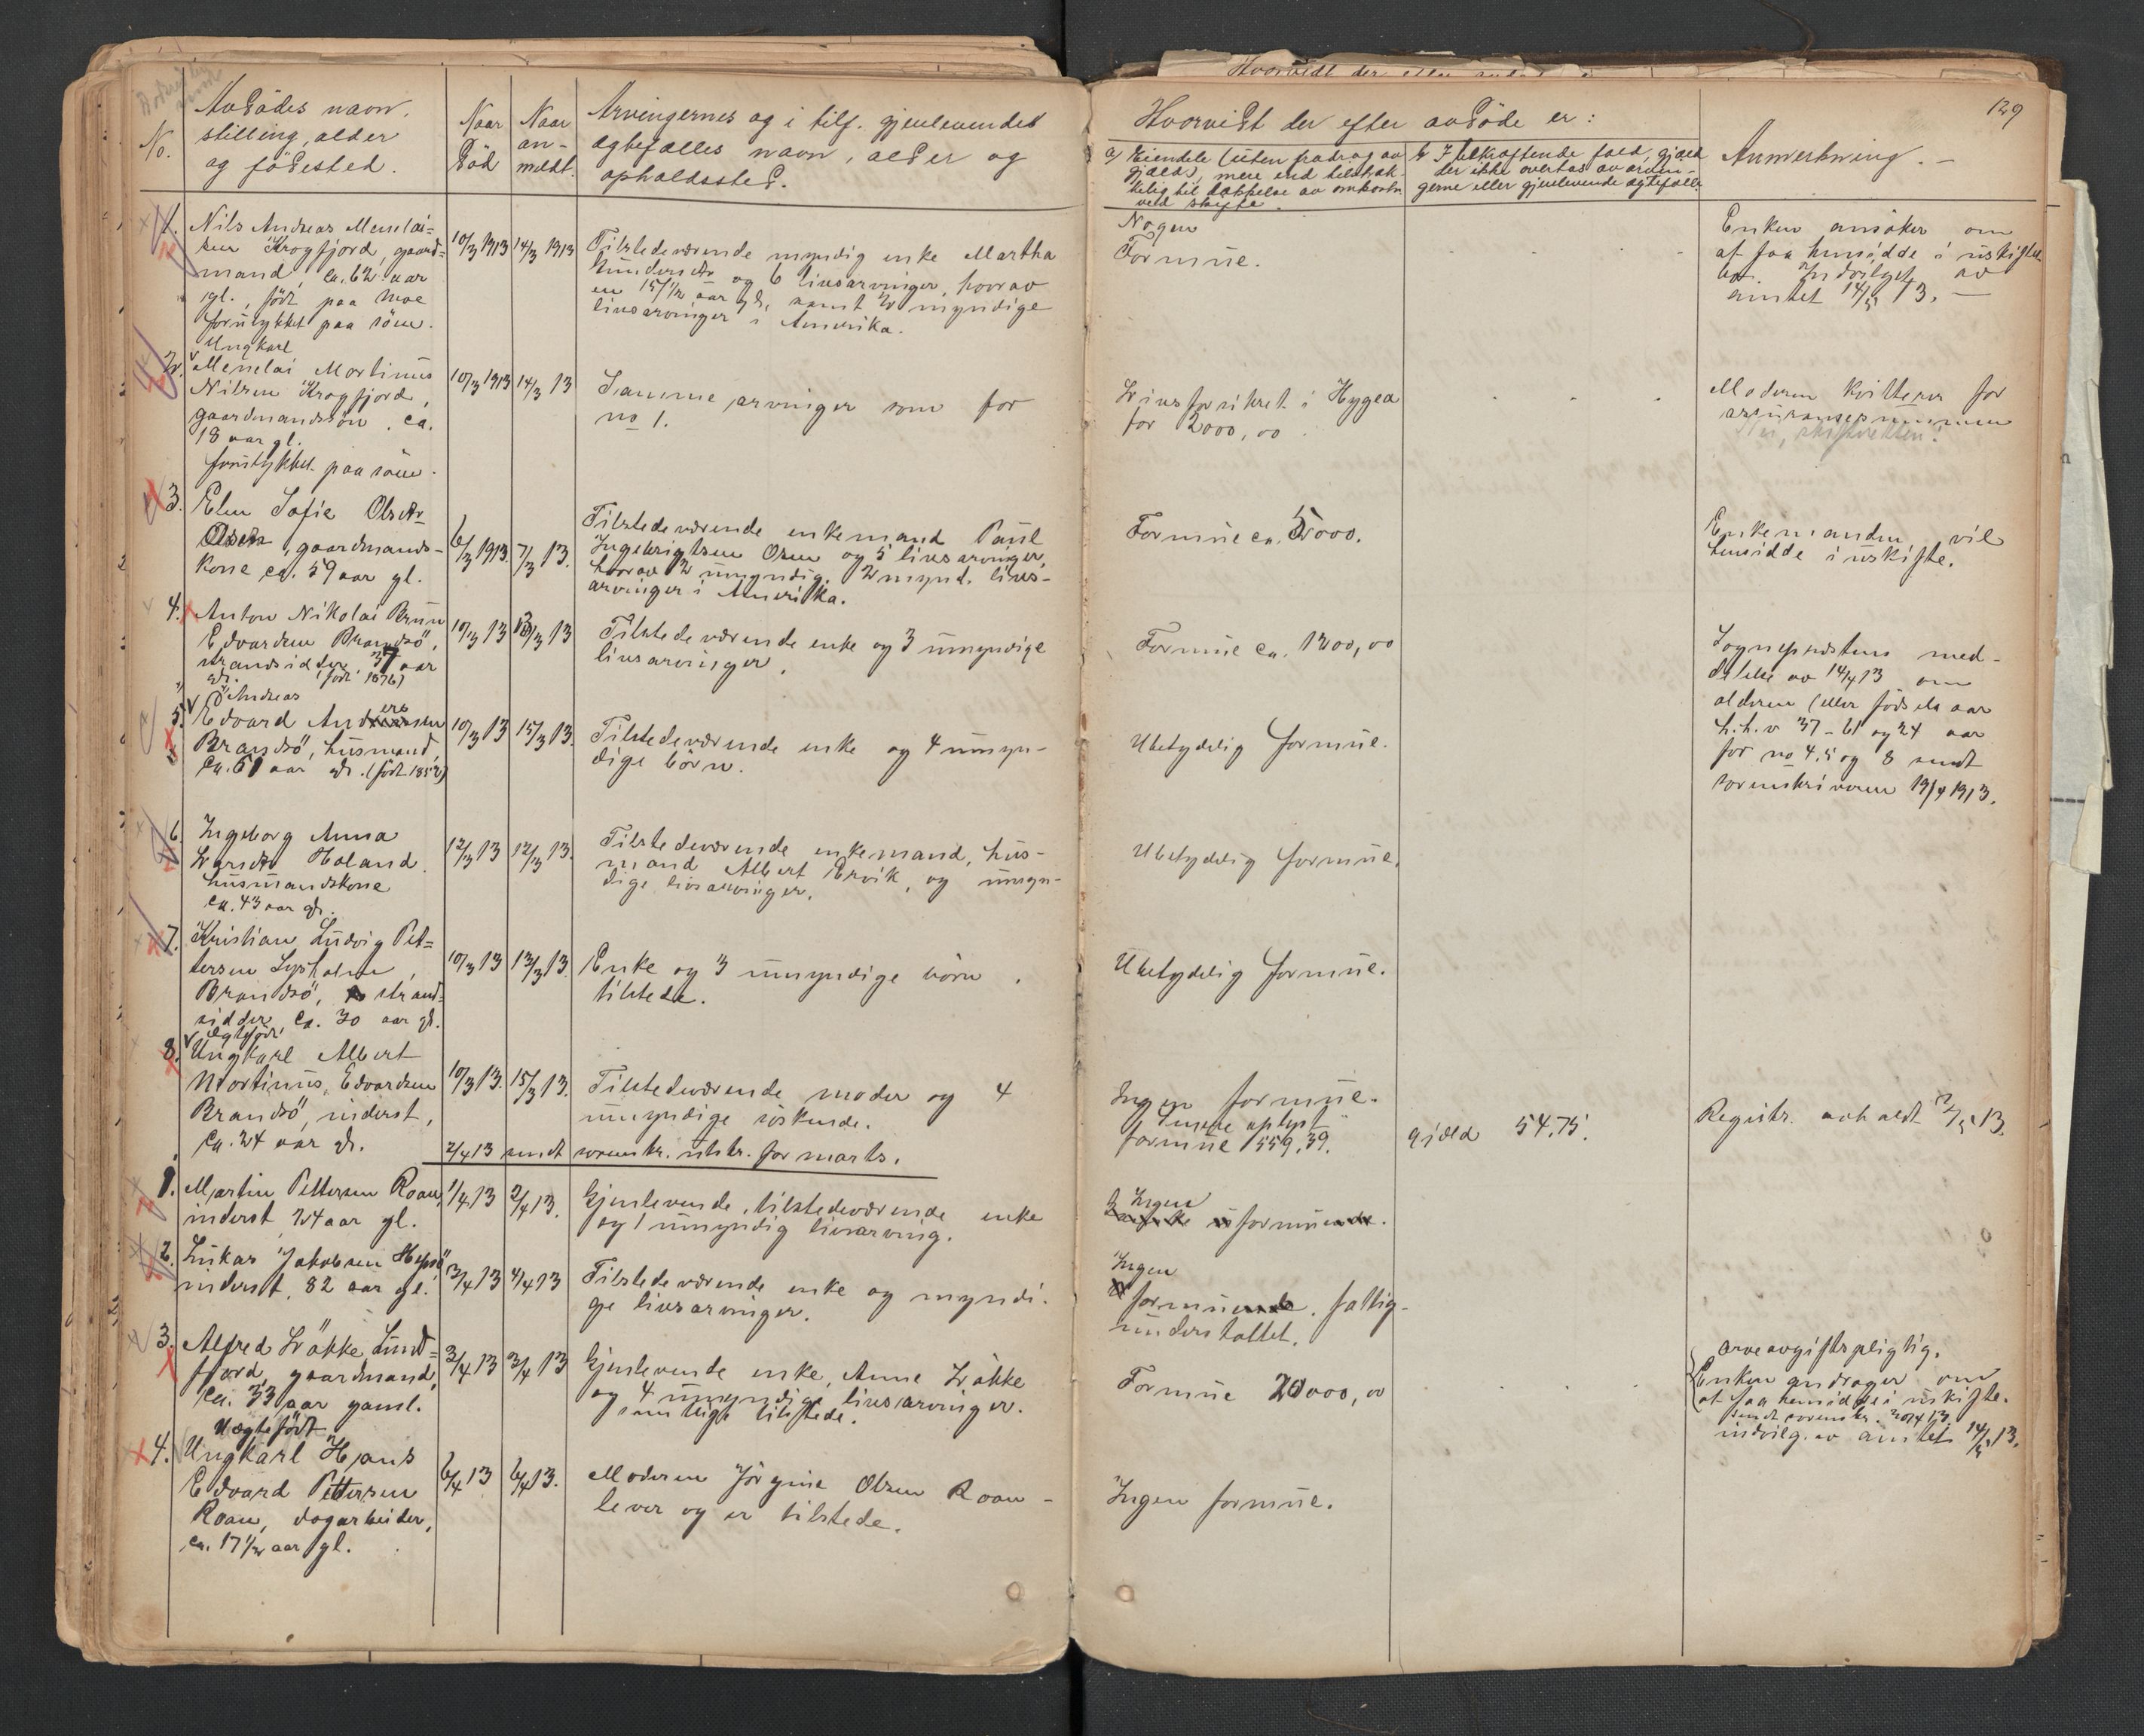 No.
Avdödes navn,
stilling, alder
og födested.
Naar
död
Naar
an-
meldt.
Arvingernes og i tilf. gjenlevendes
ægtefælles navn, alder og
opholdssted.
Hvorvidt der efter avdöde er:
a) Eiendele (uten fradrag av
gjæld), mere end tilstræk-
kelig til dækkelse av omkostn.
ved skifte.
b) I bekræftende fald, gjæld
der ikke overtas av arvin-
gerne eller gjenlevende ægtefælle.
Anmerkning. -
129
1. Nils Andreas Menelai-
sen Krogfjord, gaard-
mand, ca. 62 aar
gl., född paa Moe
forulykket paa söen.
10/3 1913
14/3 1913
Tilstedeværende myndig enke Martha
Gundersdtr og 6 livsarvinger, hvorav
en 15 1/2 aar gl., samt 2 myndige
livsarvinger i Amerika.
Nogen
Formue.
Enken ansöker om
at faa hensidde i uskiftet
bo. Indvilget av
amtet 14/5 13. -
Ungkarl
2. Menelai Martinus
Nilsen Krogfjord,
gaardmandssön, ca.
18 aar gl.
forulykket paa söen.
10/3 1913
14/3 13
Samme arvinger som for
no 1.
Livsforsikret i Hygea
for 2000,00
Moderen kvitterer for
assuransesummen
3. Elen Sofie Olsdtr
Osen, gaardmands-
kone ca. 59 aar gl.
6/3 1913.
7/3 13.
Tilstedeværende enkemand Paul
Ingebrigtsen Osen og 5 livsarvinger,
hvorav 2 umyndig. 2 mynd. livs-
arvinger i Amerika.
Formue ca. 5000.
Enkemanden vil
hensidde i uskifte.
4. Anton Nikolai Bruun
Edvardsen Brandsö,
strandsidder, 37 aar
gl. (født 1876)
10/3 13
13/3 13
Tilstedeværende enke og 3 umyndige
livsarvinger.
Formue ca. 1200,00
Sogneprestens med-
delelse av 14/4 13 om
alderen (eller fødselsaar
h.h.v 37 - 61 og 24 aar
for no 4, 5 og 8 sendt
sorenskriveren 19/4 1913.
Andreas
5. Edvard Andersen
Brandsö, husmand,
ca. 61 aar gl. (født 1852)
10/3 13
15/3 13.
Tilstedeværende enke og 4 umyn-
dige börn.
Ubetydelig formue.
6. Ingeborg Anna
Larsdtr Holand
husmandskone
ca. 43 aar gl.
12/3 13
12/3 13.
Tilstedeværende enkemand, hus-
mand Albert Ervik, og umyn-
dige livsarvinger.
Ubetydelig formue.
7. Kristian Ludvig Pet-
tersen Lysholm,
Brandsö, strand-
sidder, ca. 30 aar gl.
10/3 13
13/3 13.
Enke og 3 umyndige börn
tilstede.
Ubetydelig formue.
ægtefødt
8. Ungkarl Albert
Martinus Edvardsen
Brandsö, inderst,
ca. 24 aar gl.
10/3 13.
15/3 13.
Tilstedeværende moder og 4
umyndige söskende.
Ingen formue.
Senere oplyst
formue 559.39.
gjæld 54.75.
Registr. avholdt 2/5 13.
2/4 13 sendt sorenskr. utskr. for marts.
1. Martin Pettersen Roan,
inderst, 24 aar gl.
1/4 13
2/4 13.
Gjenlevende, tilstedeværende enke
og 1 umyndig livsarving.
Ingen
formue.
2. Lukas Jakobsen Hepsö
inderst, 82 aar gl.
3/4 13
4/4 13
Tilstedeværende enke og myndi-
ge livsarvinger.
Ingen
formue. fattig-
understöttet.
3. Alfred Løkke Sund-
fjord, gaardmand,
ca. 33 aar gaml.
3/4 13
3/4 13
Gjenlevende enke, Anne Løkke
og 4 umyndige livsarvinger.
samtlige tilstede.
Formue 20000,00
arveavgiftspligtig.
Enken andrager om
at faa hensidde i uskifte.
sendt sorenskr. 20/4 13.
indvilg. av amtet 14/5 13.
Uægtefødt
4. Ungkarl Hans
Edvard Pettersen
Roan, dagarbeider,
ca. 17 1/2 aar gl.
6/4 13
6/4 13.
Moderen Jörgine Olsen Roan -
lever og er tilstede.
Ingen formue.